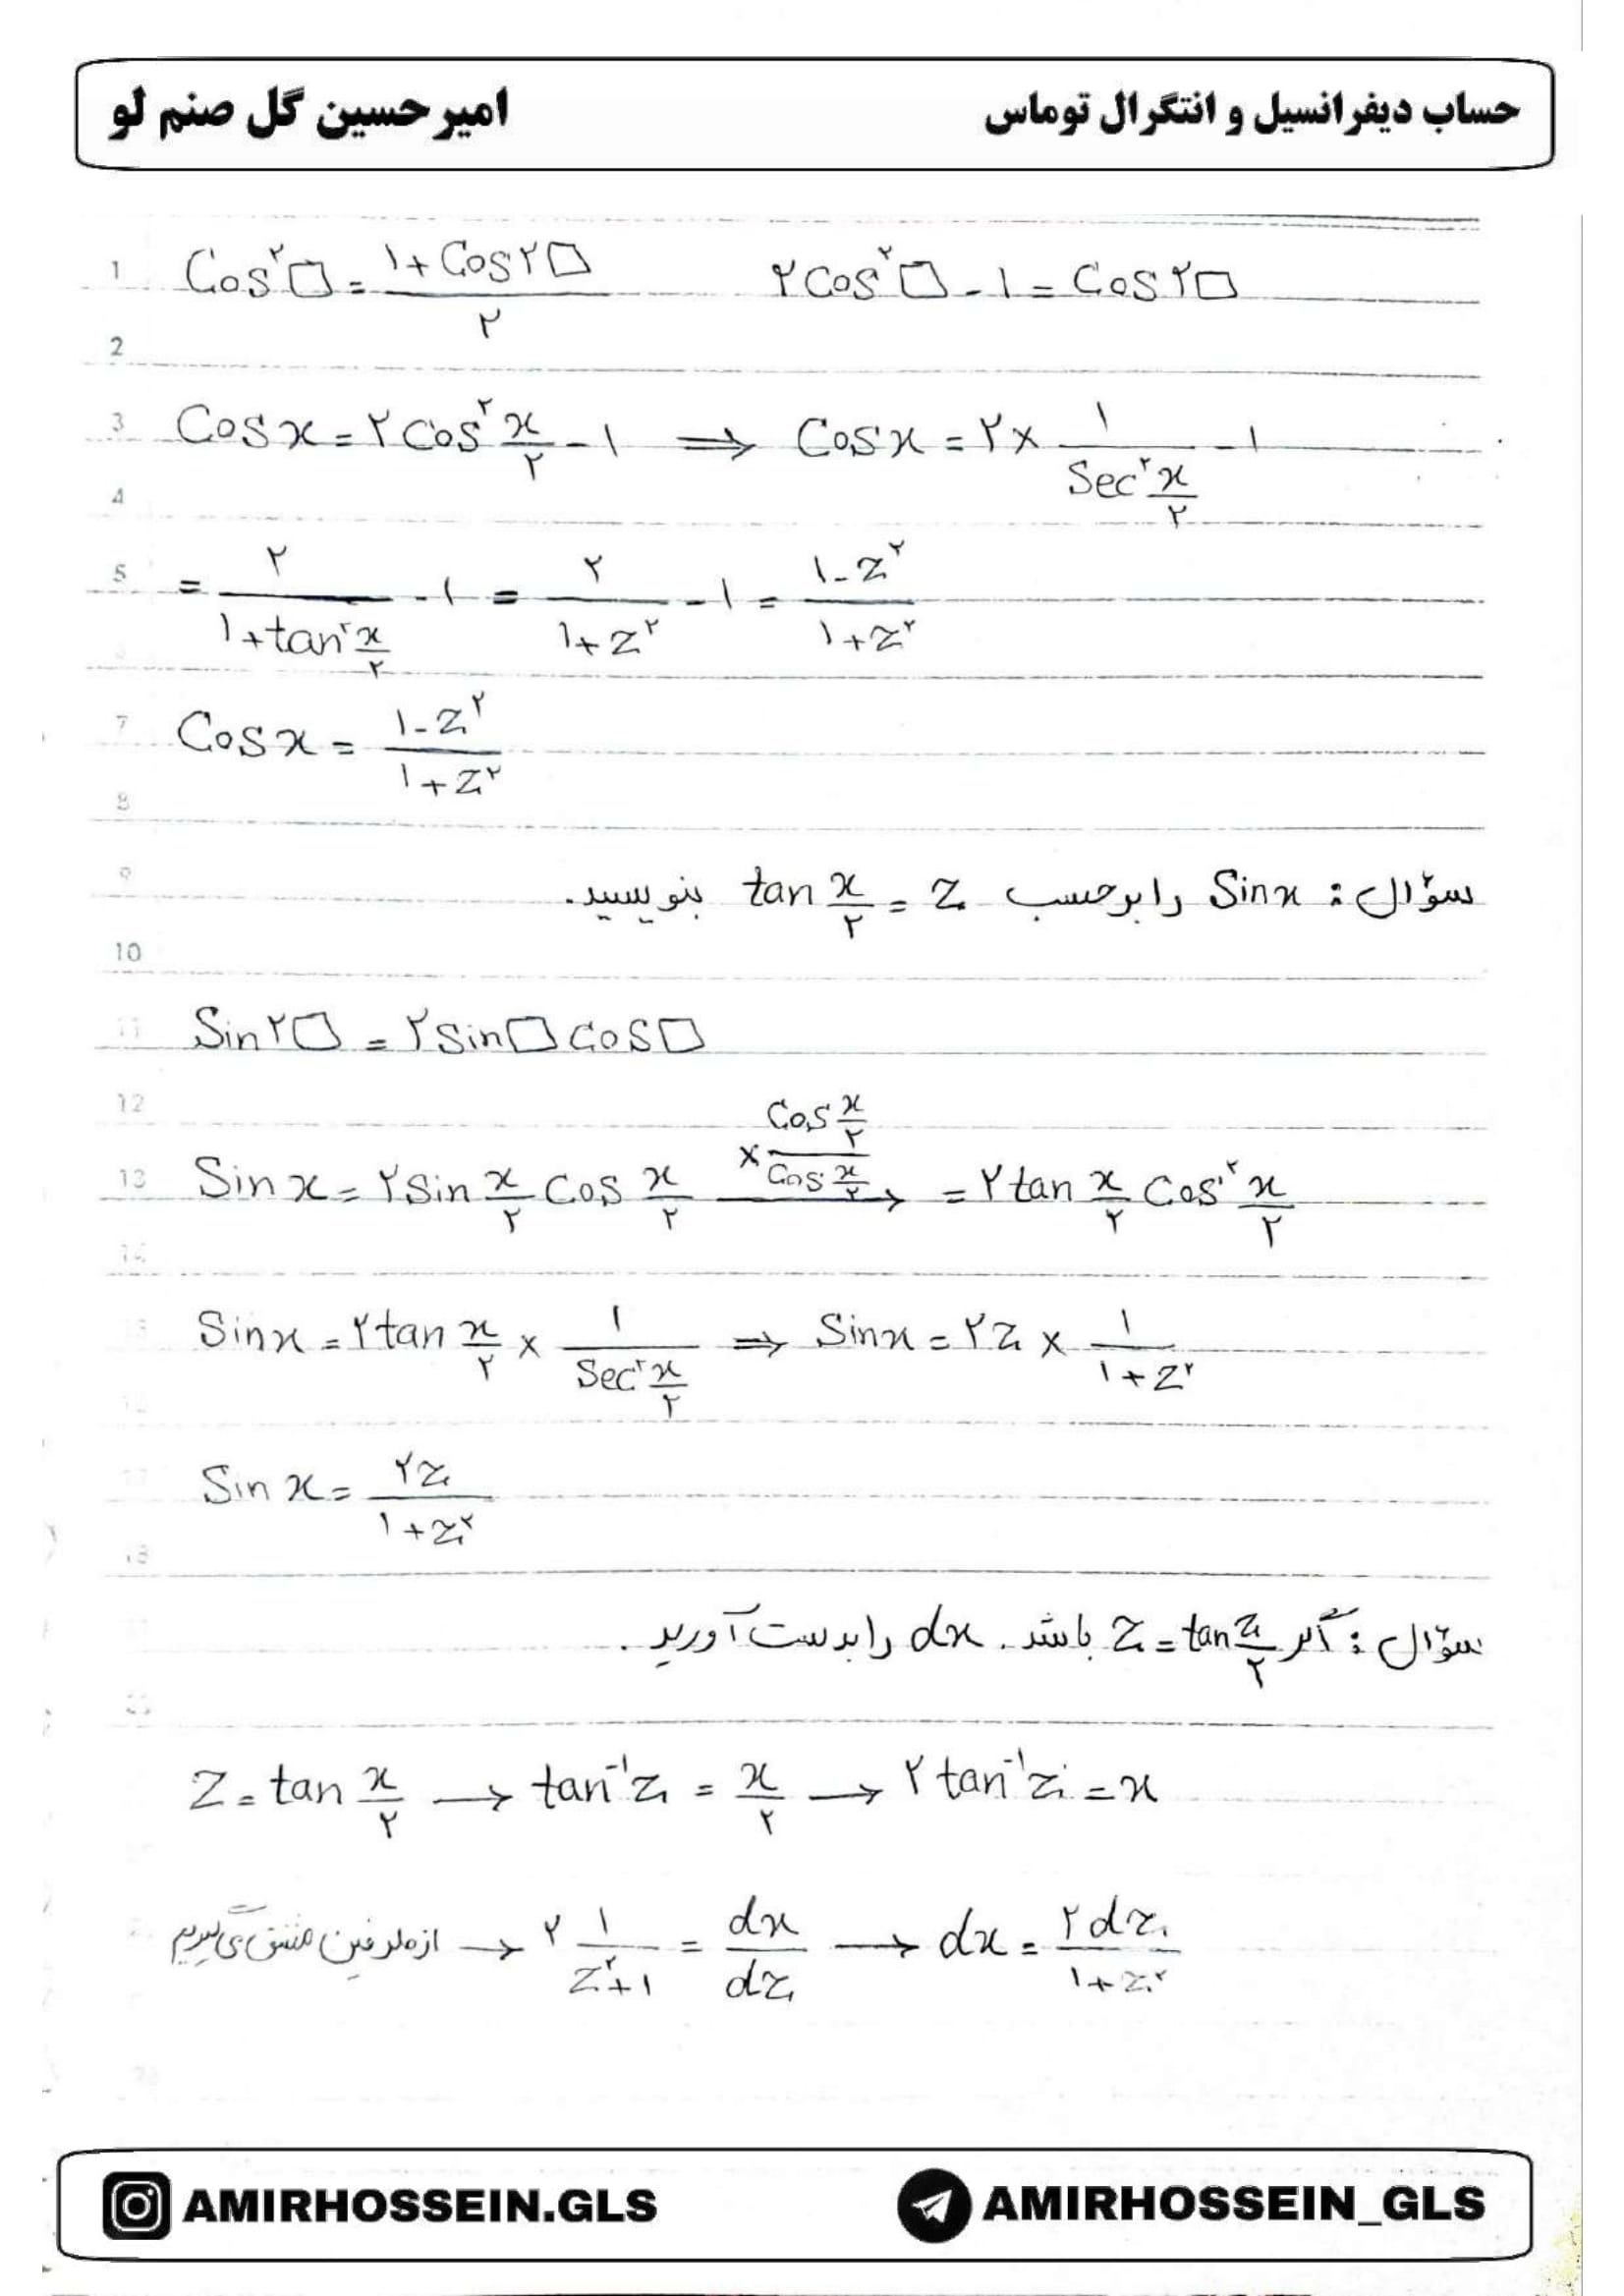 حساب دیفرانسیل و انتگرال توماس
امیرحسین گل صنم لو
1 Cos²□ = (۱ + Cos۲□)/۲    ۲Cos²□ - ۱ = Cos۲□
2
3 Cosx = ۲Cos² x/۲ - ۱ ⟹ Cosx = ۲ × ۱/(Sec² x/۲) - ۱
4
5 = ۲/(۱ + tan² x/۲) - ۱ = ۲/(۱ + z²) - ۱ = (۱ - z²)/(۱ + z²)
7 Cosx = (۱ - z²)/(۱ + z²)
8
9 سؤال : Sinx را برحسب tan x/۲ = z بنویسید.
10
11 Sin۲□ = ۲Sin□ Cos□
12
13 Sinx = ۲Sin x/۲ Cos x/۲ —(× (Cos x/۲)/(Cos x/۲))→ = ۲tan x/۲ Cos² x/۲
14
15 Sinx = ۲tan x/۲ × ۱/(Sec² x/۲) ⟹ Sinx = ۲z × ۱/(۱ + z²)
17 Sinx = ۲z/(۱ + z²)
18
سؤال : اگر z = tan z/۲ باشد. dx را بدست آورید.
z = tan x/۲ → tan⁻¹z = x/۲ → ۲tan⁻¹z = x
از طرفین مشتق می‌گیریم → ۲ ۱/(z² + ۱) = dx/dz → dx = ۲dz/(۱ + z²)
AMIRHOSSEIN.GLS
AMIRHOSSEIN_GLS